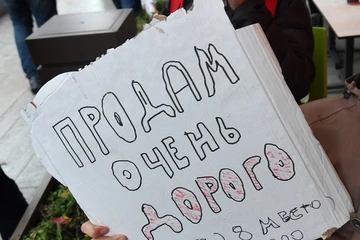 ПРОДАМ
ОЧЕНЬ
ДОРОГО
8 МЕСТО